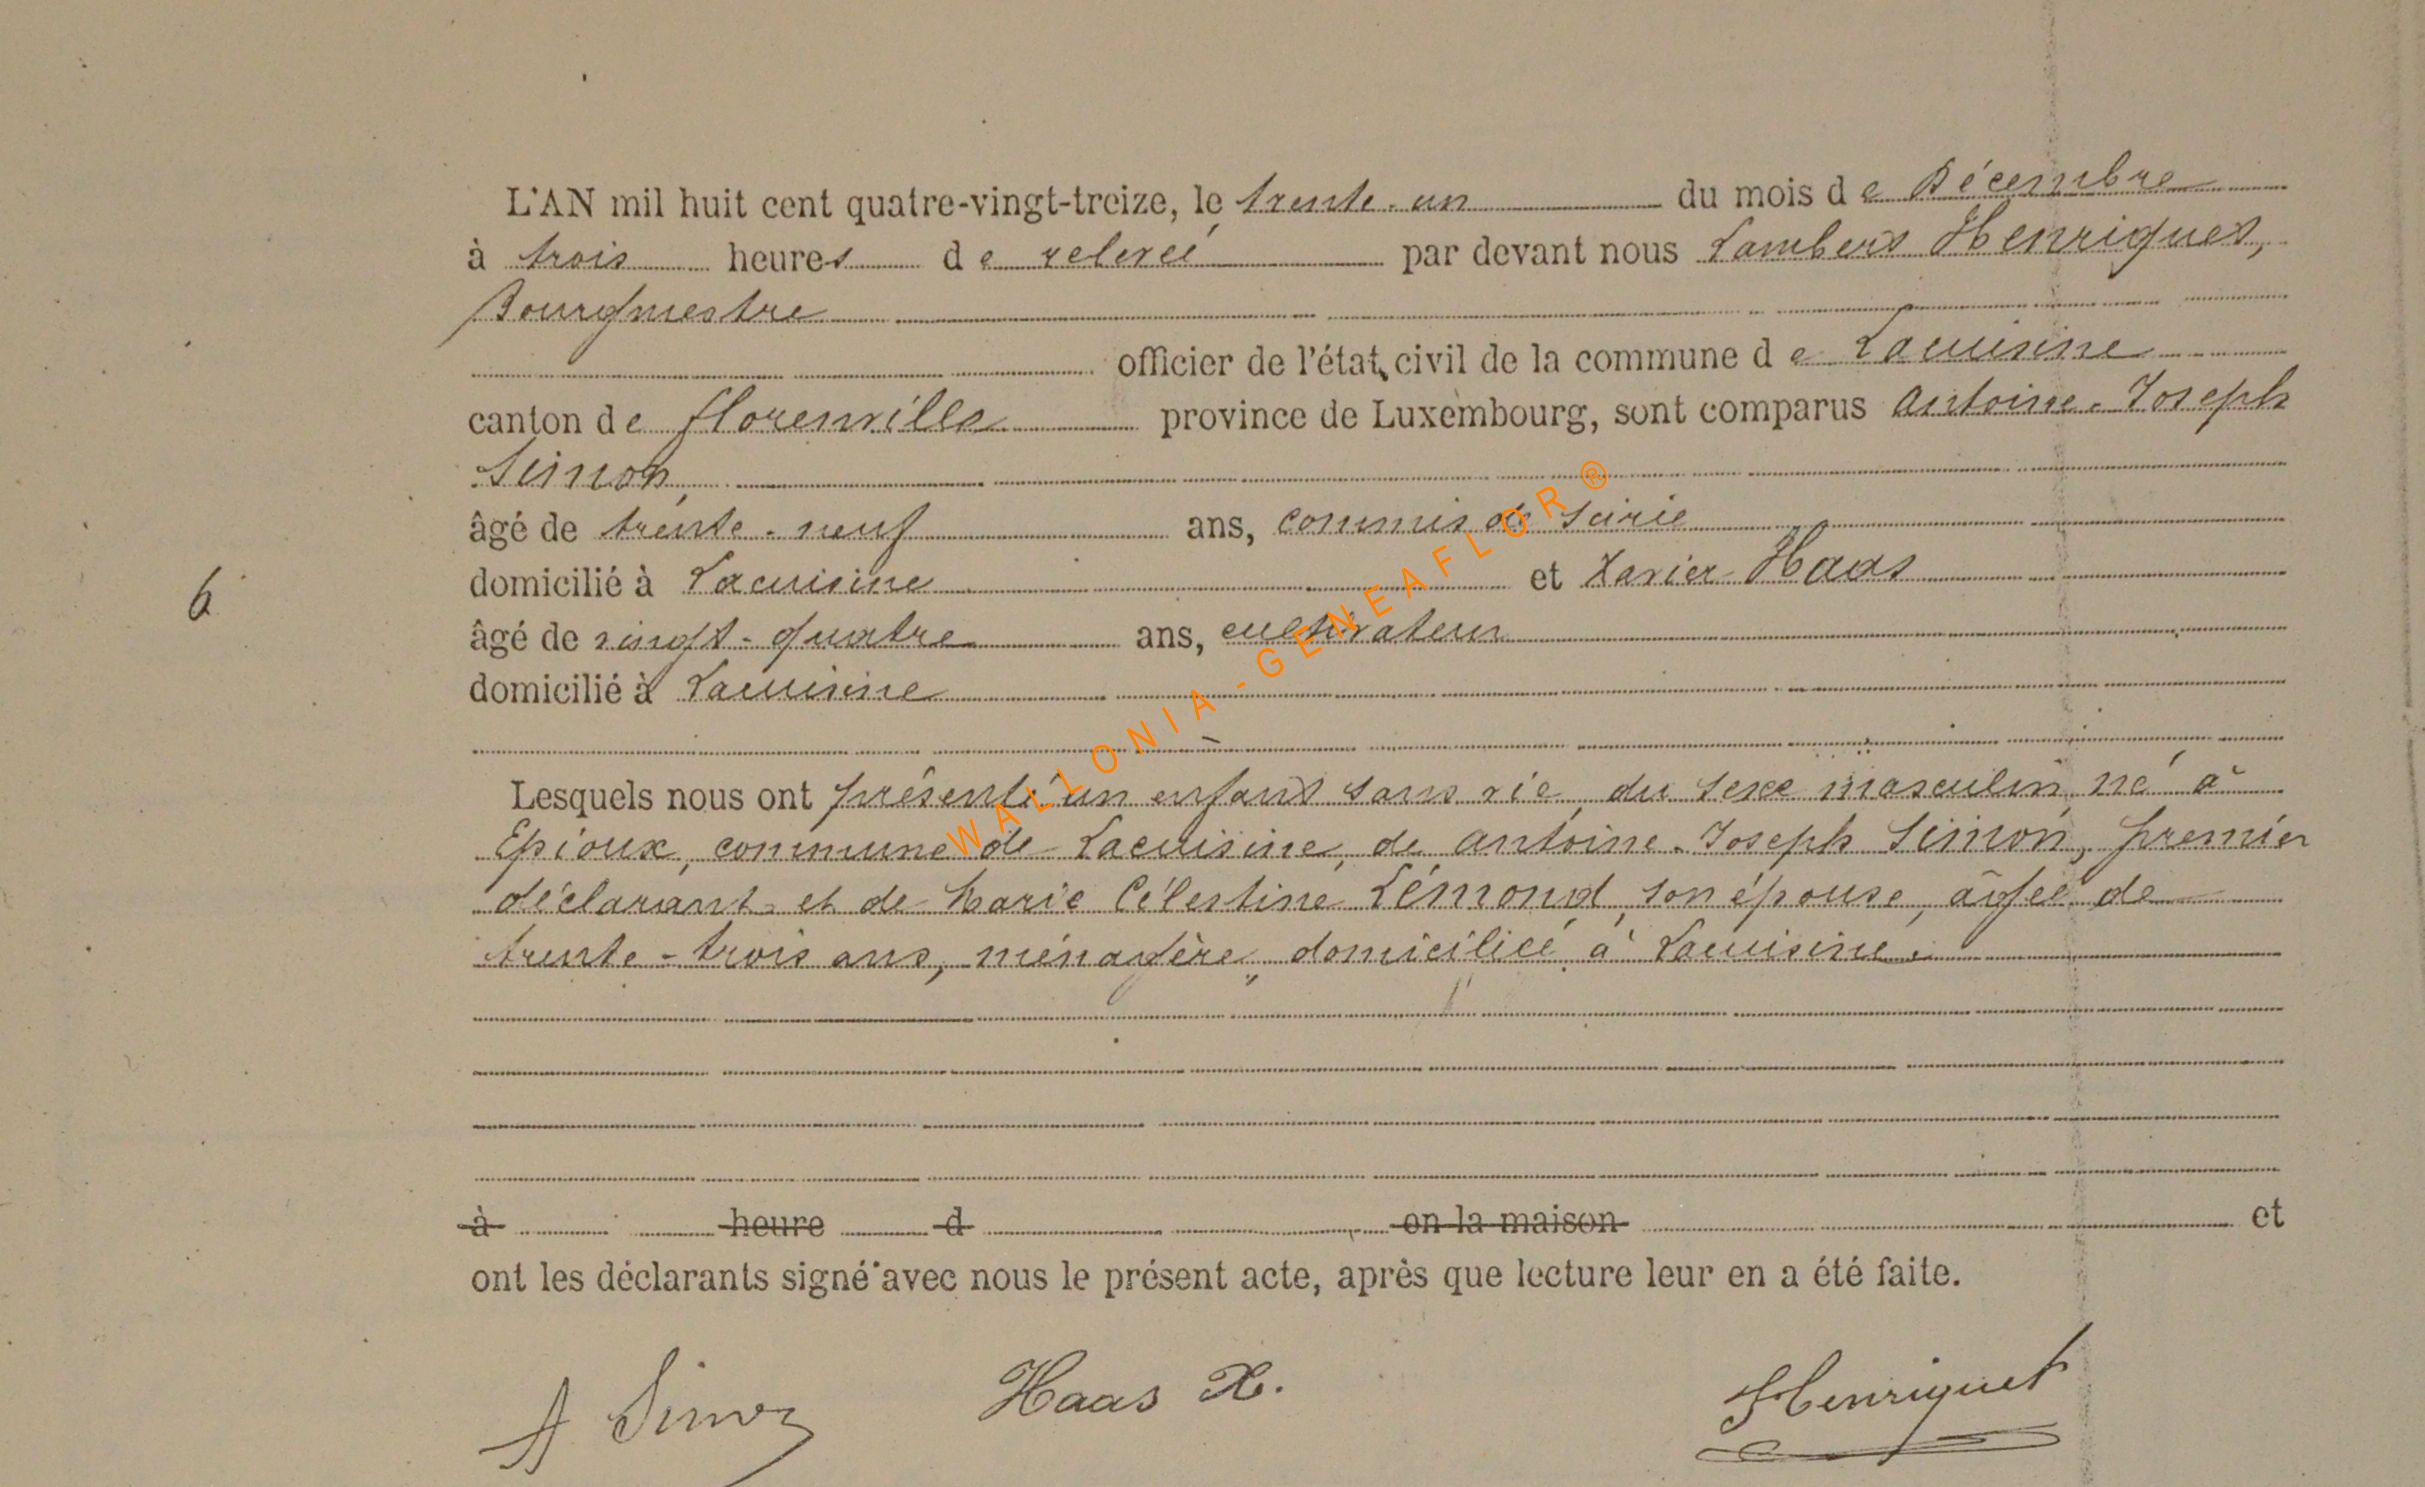 L'AN mil huit cent quatre-vingt-treize, le trente-un du mois de Décembre
à trois heures de relevée par devant nous Lambert Henriquet,
Bourgmestre
officier de l'état civil de la commune de Lacuisine
canton de Florenville province de Luxembourg, sont comparus Antoine-Joseph
Simon,
âgé de trente-neuf ans, commis de scirie
domicilié à Lacuisine et Xavier Haas
âgé de vingt-quatre ans, cultivateur
domicilié à Lacuisine
6
Lesquels nous ont présenté un enfant sans vie, du sexe masculin, né à
Epioux, commune de Lacuisine, de Antoine-Joseph Simon, premier
déclarant et de Marie Célestine Lémond, son épouse, âgée de
trente-trois ans, ménagère, domiciliée à Lacuisine.
à heure d en la maison et
ont les déclarants signé avec nous le présent acte, après que lecture leur en a été faite.
A Simon Haas X. Henriquet
WALLONIA-GENEAFLOR®